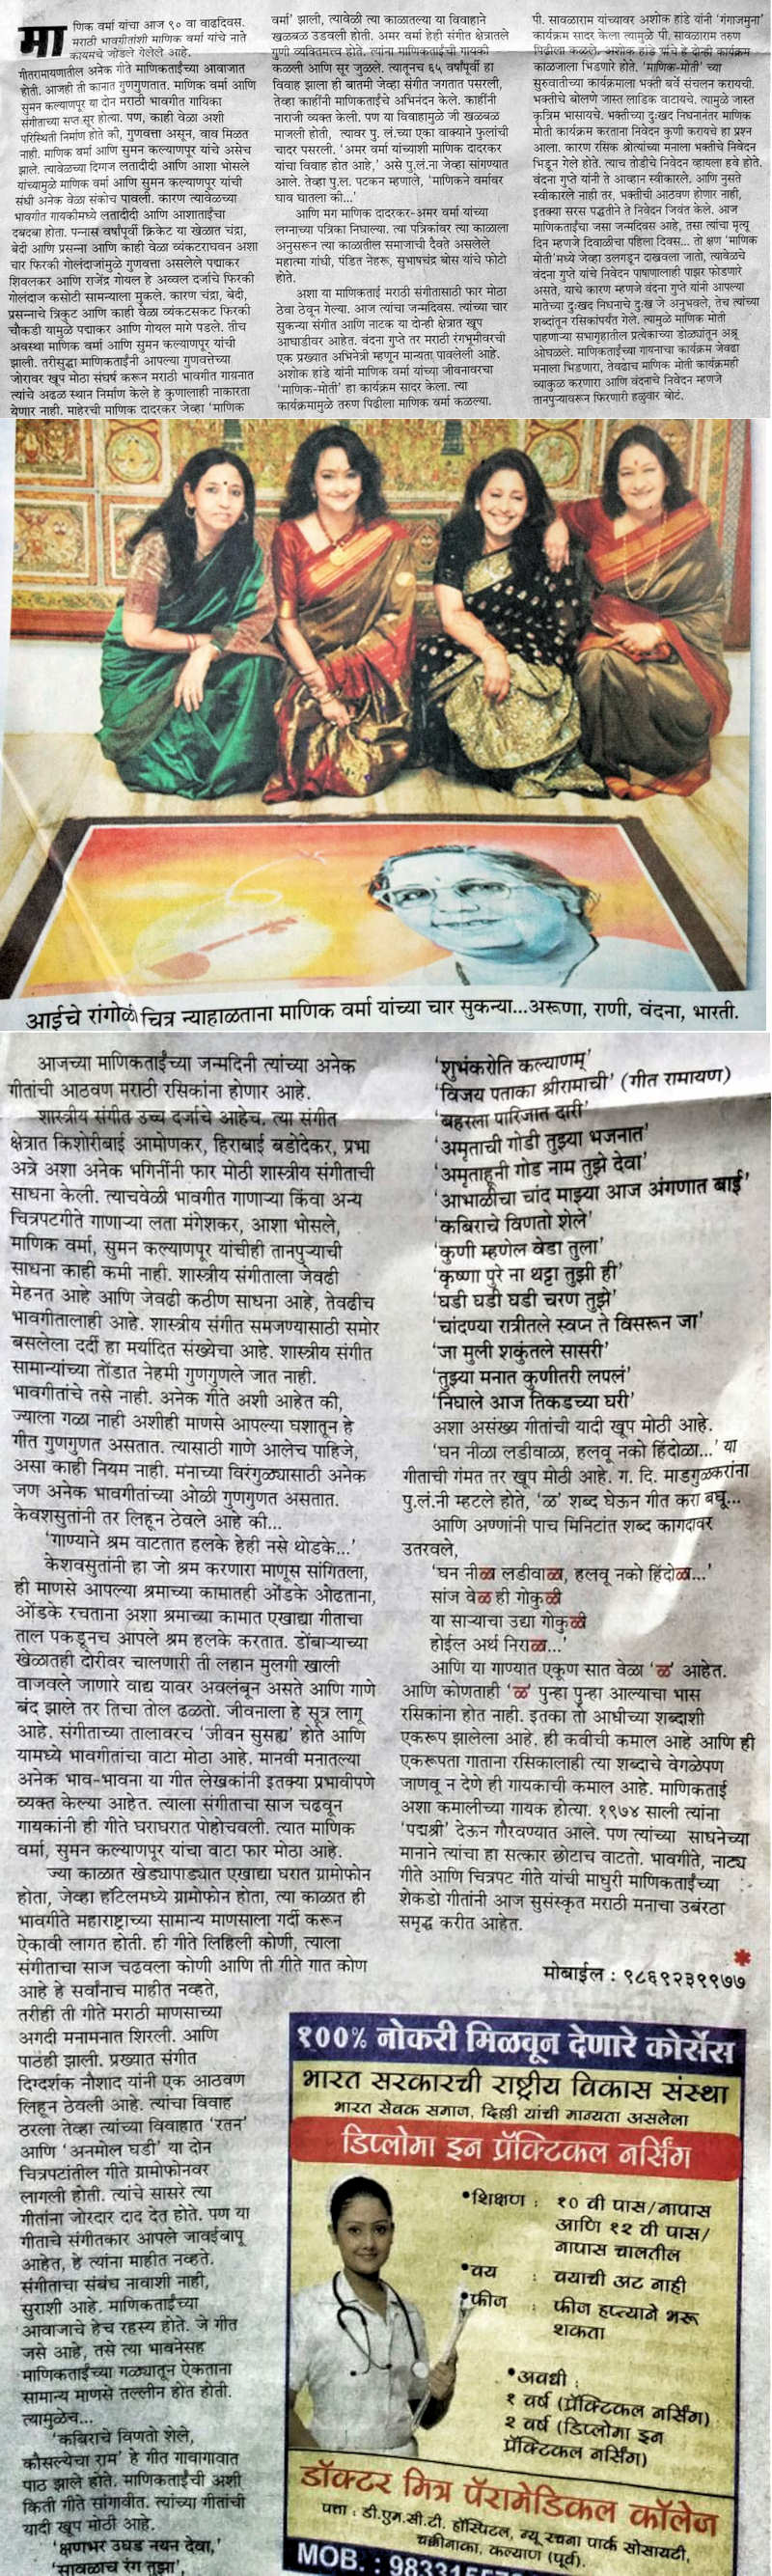 माणिक वर्मा यांचा आज ९० वा वाढदिवस.
मराठी भावगीतांशी माणिक वर्मा यांचे नाते
कायमचे जोडले गेलेले आहे.
गीतरामायणातील अनेक गीते माणिकताईंच्या आवाजात
होती. आजही ती कानात गुणगुणतात. माणिक वर्मा आणि
सुमन कल्याणपूर या दोन मराठी भावगीत गायिका
संगीताच्या सप्त सूर होत्या. पण, काही वेळा अशी
परिस्थिती निर्माण होते की, गुणवत्ता असून, वाव मिळत
नाही. माणिक वर्मा आणि सुमन कल्याणपूर यांचे असेच
झाले. त्यावेळच्या दिग्गज लतादीदी आणि आशा भोसले
यांच्यामुळे माणिक वर्मा आणि सुमन कल्याणपूर यांची
संधी अनेक वेळा संकोच पावली. कारण त्यावेळच्या
भावगीत गायकीमध्ये लतादीदी आणि आशाताईंचा
दबदबा होता. पन्नास वर्षांपूर्वी क्रिकेट या खेळात चंद्रा,
बेदी आणि प्रसन्ना आणि काही वेळा व्यंकटराघवन अशा
चार फिरकी गोलंदाजांमुळे गुणवत्ता असलेले पद्माकर
शिवलकर आणि राजेंद्र गोयल हे अव्वल दर्जाचे फिरकी
गोलंदाज कसोटी सामन्याला मुकले. कारण चंद्रा, बेदी,
प्रसन्नाचे त्रिकुट आणि काही वेळा व्यंकटसकट फिरकी
चौकडी यामुळे पद्माकर आणि गोयल मागे पडले. तीच
अवस्था माणिक वर्मा आणि सुमन कल्याणपूर यांची
झाली. तरीसुद्धा माणिकताईंनी आपल्या गुणवत्तेच्या
जोरावर खूप मोठा संघर्ष करून मराठी भावगीत गायनात
त्यांचे अढळ स्थान निर्माण केले हे कुणालाही नाकारता
येणार नाही. माहेरची माणिक दादरकर जेव्हा 'माणिक
वर्मा' झाली, त्यावेळी त्या काळातल्या या विवाहाने
खळबळ उडवली होती. अमर वर्मा हेही संगीत क्षेत्रातले
गुणी व्यक्तिमत्त्व होते. त्यांना माणिकताईंची गायकी
कळली आणि सूर जुळले. त्यातूनच ६५ वर्षांपूर्वी हा
विवाह झाला ही बातमी जेव्हा संगीत जगतात पसरली,
तेव्हा काहींनी माणिकताईंचे अभिनंदन केले. काहींनी
नाराजी व्यक्त केली. पण या विवाहामुळे जी खळबळ
माजली होती, त्यावर पु. लं.च्या एका वाक्याने फुलांची
चादर पसरली. 'अमर वर्मांच्याशी माणिक दादरकर
यांचा विवाह होत आहे,' असे पु.लं.ना जेव्हा सांगण्यात
आले. तेव्हा पु.ल. पटकन म्हणाले, 'माणिकने वर्मावर
घाव घातला की...'
आणि मग माणिक दादरकर-अमर वर्मा यांच्या
लग्नाच्या पत्रिका निघाल्या. त्या पत्रिकांवर त्या काळाला
अनुसरून त्या काळातील समाजाची दैवते असलेले
महात्मा गांधी, पंडित नेहरू, सुभाषचंद्र बोस यांचे फोटो
होते.
अशा या माणिकताई मराठी संगीतासाठी फार मोठा
ठेवा ठेवून गेल्या. आज त्यांचा जन्मदिवस. त्यांच्या चार
सुकन्या संगीत आणि नाटक या दोन्ही क्षेत्रात खूप
आघाडीवर आहेत. वंदना गुप्ते तर मराठी रंगभूमीवरची
एक प्रख्यात अभिनेत्री म्हणून मान्यता पावलेली आहे.
अशोक हांडे यांनी माणिक वर्मा यांच्या जीवनावरचा
'माणिक-मोती' हा कार्यक्रम सादर केला. त्या
कार्यक्रमामुळे तरुण पिढीला माणिक वर्मा कळल्या.
पी. सावळाराम यांच्यावर अशोक हांडे यांनी 'गंगाजमुना'
कार्यक्रम सादर केला त्यामुळे पी. सावळाराम तरुण
पिढीला कळले. अशोक हांडे यांचे हे दोन्ही कार्यक्रम
काळजाला भिडणारे होते. 'माणिक-मोती' च्या
सुरुवातीच्या कार्यक्रमाला भक्ती बर्वे संचलन करायची.
भक्तीचे बोलणे जास्त लाडिक वाटायचे. त्यामुळे जास्त
कृत्रिम भासायचे. भक्तीच्या दुःखद निधनानंतर माणिक
मोती कार्यक्रम करताना निवेदन कुणी करायचे हा प्रश्न
आला. कारण रसिक श्रोत्यांच्या मनाला भक्तीचे निवेदन
भिडून गेले होते. त्याच तोडीचे निवेदन व्हायला हवे होते.
वंदना गुप्ते यांनी ते आव्हान स्वीकारले. आणि नुसते
स्वीकारले नाही तर, भक्तीची आठवण होणार नाही,
इतक्या सरस पद्धतीने ते निवेदन जिवंत केले. आज
माणिकताईंचा जसा जन्मदिवस आहे, तसा त्यांचा मृत्यू
दिन म्हणजे दिवाळीचा पहिला दिवस... तो क्षण 'माणिक
मोती'मध्ये जेव्हा उलगडून दाखवला जातो, त्यावेळचे
वंदना गुप्ते यांचे निवेदन पाषाणालाही पाझर फोडणारे
असते, याचे कारण म्हणजे वंदना गुप्ते यांनी आपल्या
मातेच्या दुःखद निधनाचे दुःख जे अनुभवले, तेच त्यांच्या
शब्दांतून रसिकांपर्यंत गेले. त्यामुळे माणिक मोती
पाहणाऱ्या सभागृहातील प्रत्येकाच्या डोळ्यांतून अश्रू
ओघळले. माणिकताईंच्या गायनाचा कार्यक्रम जेवढा
मनाला भिडणारा, तेवढाच माणिक मोती कार्यक्रमही
व्याकुळ करणारा आणि वंदनाचे निवेदन म्हणजे
तानपुऱ्यावरून फिरणारी हळुवार बोटं.
आईचे रांगोळी चित्र न्याहाळताना माणिक वर्मा यांच्या चार सुकन्या...अरूणा, राणी, वंदना, भारती.
आजच्या माणिकताईंच्या जन्मदिनी त्यांच्या अनेक
गीतांची आठवण मराठी रसिकांना होणार आहे.
शास्त्रीय संगीत उच्च दर्जाचे आहेच. त्या संगीत
क्षेत्रात किशोरीबाई आमोणकर, हिराबाई बडोदेकर, प्रभा
अत्रे अशा अनेक भगिनींनी फार मोठी शास्त्रीय संगीताची
साधना केली. त्याचवेळी भावगीत गाणाऱ्या किंवा अन्य
चित्रपटगीते गाणाऱ्या लता मंगेशकर, आशा भोसले,
माणिक वर्मा, सुमन कल्याणपूर यांचीही तानपुऱ्याची
साधना काही कमी नाही. शास्त्रीय संगीताला जेवढी
मेहनत आहे आणि जेवढी कठीण साधना आहे, तेवढीच
भावगीतालाही आहे. शास्त्रीय संगीत समजण्यासाठी समोर
बसलेला दर्दी हा मर्यादित संख्येचा आहे. शास्त्रीय संगीत
सामान्यांच्या तोंडात नेहमी गुणगुणले जात नाही.
भावगीतांचे तसे नाही. अनेक गीते अशी आहेत की,
ज्याला गळा नाही अशीही माणसे आपल्या घशातून हे
गीत गुणगुणत असतात. त्यासाठी गाणे आलेच पाहिजे,
असा काही नियम नाही. मनाच्या विरंगुळ्यासाठी अनेक
जण अनेक भावगीतांच्या ओळी गुणगुणत असतात.
केवशसुतांनी तर लिहून ठेवले आहे की...
'गाण्याने श्रम वाटतात हलके हेही नसे थोडके...'
केशवसुतांनी हा जो श्रम करणारा माणूस सांगितला,
ही माणसे आपल्या श्रमाच्या कामातही ओंडके ओढताना,
ओंडके रचताना अशा श्रमाच्या कामात एखाद्या गीताचा
ताल पकडूनच आपले श्रम हलके करतात. डोंबाऱ्याच्या
खेळातही दोरीवर चालणारी ती लहान मुलगी खाली
वाजवले जाणारे वाद्य यावर अवलंबून असते आणि गाणे
बंद झाले तर तिचा तोल ढळतो. जीवनाला हे सूत्र लागू
आहे. संगीताच्या तालावरच 'जीवन सुसह्य' होते आणि
यामध्ये भावगीतांचा वाटा मोठा आहे. मानवी मनातल्या
अनेक भाव-भावना या गीत लेखकांनी इतक्या प्रभावीपणे
व्यक्त केल्या आहेत. त्याला संगीताचा साज चढवून
गायकांनी ही गीते घराघरात पोहोचवली. त्यात माणिक
वर्मा, सुमन कल्याणपूर यांचा वाटा फार मोठा आहे.
ज्या काळात खेड्यापाड्यात एखाद्या घरात ग्रामोफोन
होता, जेव्हा हॉटेलमध्ये ग्रामोफोन होता, त्या काळात ही
भावगीते महाराष्ट्राच्या सामान्य माणसाला गर्दी करून
ऐकावी लागत होती. ही गीते लिहिली कोणी, त्याला
संगीताचा साज चढवला कोणी आणि ती गीते गात कोण
आहे हे सर्वांनाच माहीत नव्हते,
तरीही ती गीते मराठी माणसाच्या
अगदी मनामनात शिरली. आणि
पाठही झाली. प्रख्यात संगीत
दिग्दर्शक नौशाद यांनी एक आठवण
लिहून ठेवली आहे. त्यांचा विवाह
ठरला तेव्हा त्यांच्या विवाहात 'रतन'
आणि 'अनमोल घडी' या दोन
चित्रपटांतील गीते ग्रामोफोनवर
लागली होती. त्यांचे सासरे त्या
गीतांना जोरदार दाद देत होते. पण या
गीताचे संगीतकार आपले जावईबापू
आहेत, हे त्यांना माहीत नव्हते.
संगीताचा संबंध नावाशी नाही,
सुराशी आहे. माणिकताईंच्या
आवाजाचे हेच रहस्य होते. जे गीत
जसे आहे, तसे त्या भावनेसह
माणिकताईंच्या गळ्यातून ऐकताना
सामान्य माणसे तल्लीन होत होती.
त्यामुळेच...
'कबिराचे विणतो शेले,
कौसल्येचा राम' हे गीत गावागावात
पाठ झाले होते. माणिकताईंची अशी
किती गीते सांगावीत. त्यांच्या गीतांची
यादी खूप मोठी आहे.
'क्षणभर उघड नयन देवा,'
'सावळाच रंग तुझा',
'शुभंकरोति कल्याणम्'
'विजय पताका श्रीरामाची' (गीत रामायण)
'बहरला पारिजात दारी'
'अमृताची गोडी तुझ्या भजनात'
'अमृताहूनी गोड नाम तुझे देवा'
'आभाळीचा चांद माझ्या आज अंगणात बाई'
'कबिराचे विणतो शेले'
'कुणी म्हणेल वेडा तुला'
'कृष्णा पुरे ना थट्टा तुझी ही'
'घडी घडी घडी चरण तुझे'
'चांदण्या रात्रीतले स्वप्न ते विसरून जा'
'जा मुली शकुंतले सासरी'
'तुझ्या मनात कुणीतरी लपलं'
'निघाले आज तिकडच्या घरी'
अशा असंख्य गीतांची यादी खूप मोठी आहे.
'घन नीळा लडीवाळा, हलवू नको हिंदोळा...' या
गीताची गंमत तर खूप मोठी आहे. ग. दि. माडगुळकरांना
पु.लं.नी म्हटले होते, 'ळ' शब्द घेऊन गीत करा बघू...
आणि अण्णांनी पाच मिनिटांत शब्द कागदावर
उतरवले,
'घन नीळा लडीवाळा, हलवू नको हिंदोळा...'
सांज वेळ ही गोकुळी
या साऱ्याचा उद्या गोकुळी
होईल अर्थ निराळा...'
आणि या गाण्यात एकूण सात वेळा 'ळ' आहेत.
आणि कोणताही 'ळ' पुन्हा पुन्हा आल्याचा भास
रसिकांना होत नाही. इतका तो आधीच्या शब्दाशी
एकरूप झालेला आहे. ही कवीची कमाल आहे आणि ही
एकरूपता गाताना रसिकालाही त्या शब्दाचे वेगळेपण
जाणवू न देणे ही गायकाची कमाल आहे. माणिकताई
अशा कमालीच्या गायक होत्या. १९७४ साली त्यांना
'पद्मश्री' देऊन गौरवण्यात आले. पण त्यांच्या साधनेच्या
मानाने त्यांचा हा सत्कार छोटाच वाटतो. भावगीते, नाट्य
गीते आणि चित्रपट गीते यांची माधुरी माणिकताईंच्या
शेकडो गीतांनी आज सुसंस्कृत मराठी मनाचा उबंरठा
समृद्ध करीत आहेत.
मोबाईल : ९८६९२३९९७७
१००% नोकरी मिळवून देणारे कोर्सेस
भारत सरकारची राष्ट्रीय विकास संस्था
भारत सेवक समाज, दिल्ली यांची मान्यता असलेला
डिप्लोमा इन प्रॅक्टिकल नर्सिंग
•शिक्षण : १० वी पास/नापास
आणि १२ वी पास/
नापास चालतील
•वय : वयाची अट नाही
•फीज : फीज हप्त्याने भरू
शकता
•अवधी :
१ वर्ष (प्रॅक्टिकल नर्सिंग)
२ वर्ष (डिप्लोमा इन
प्रॅक्टिकल नर्सिंग)
डॉक्टर मित्र पॅरामेडिकल कॉलेज
पत्ता : डी.एम.सी.टी. हॉस्पिटल, न्यू रचना पार्क सोसायटी,
चक्कीनाका, कल्याण (पूर्व).
MOB. :